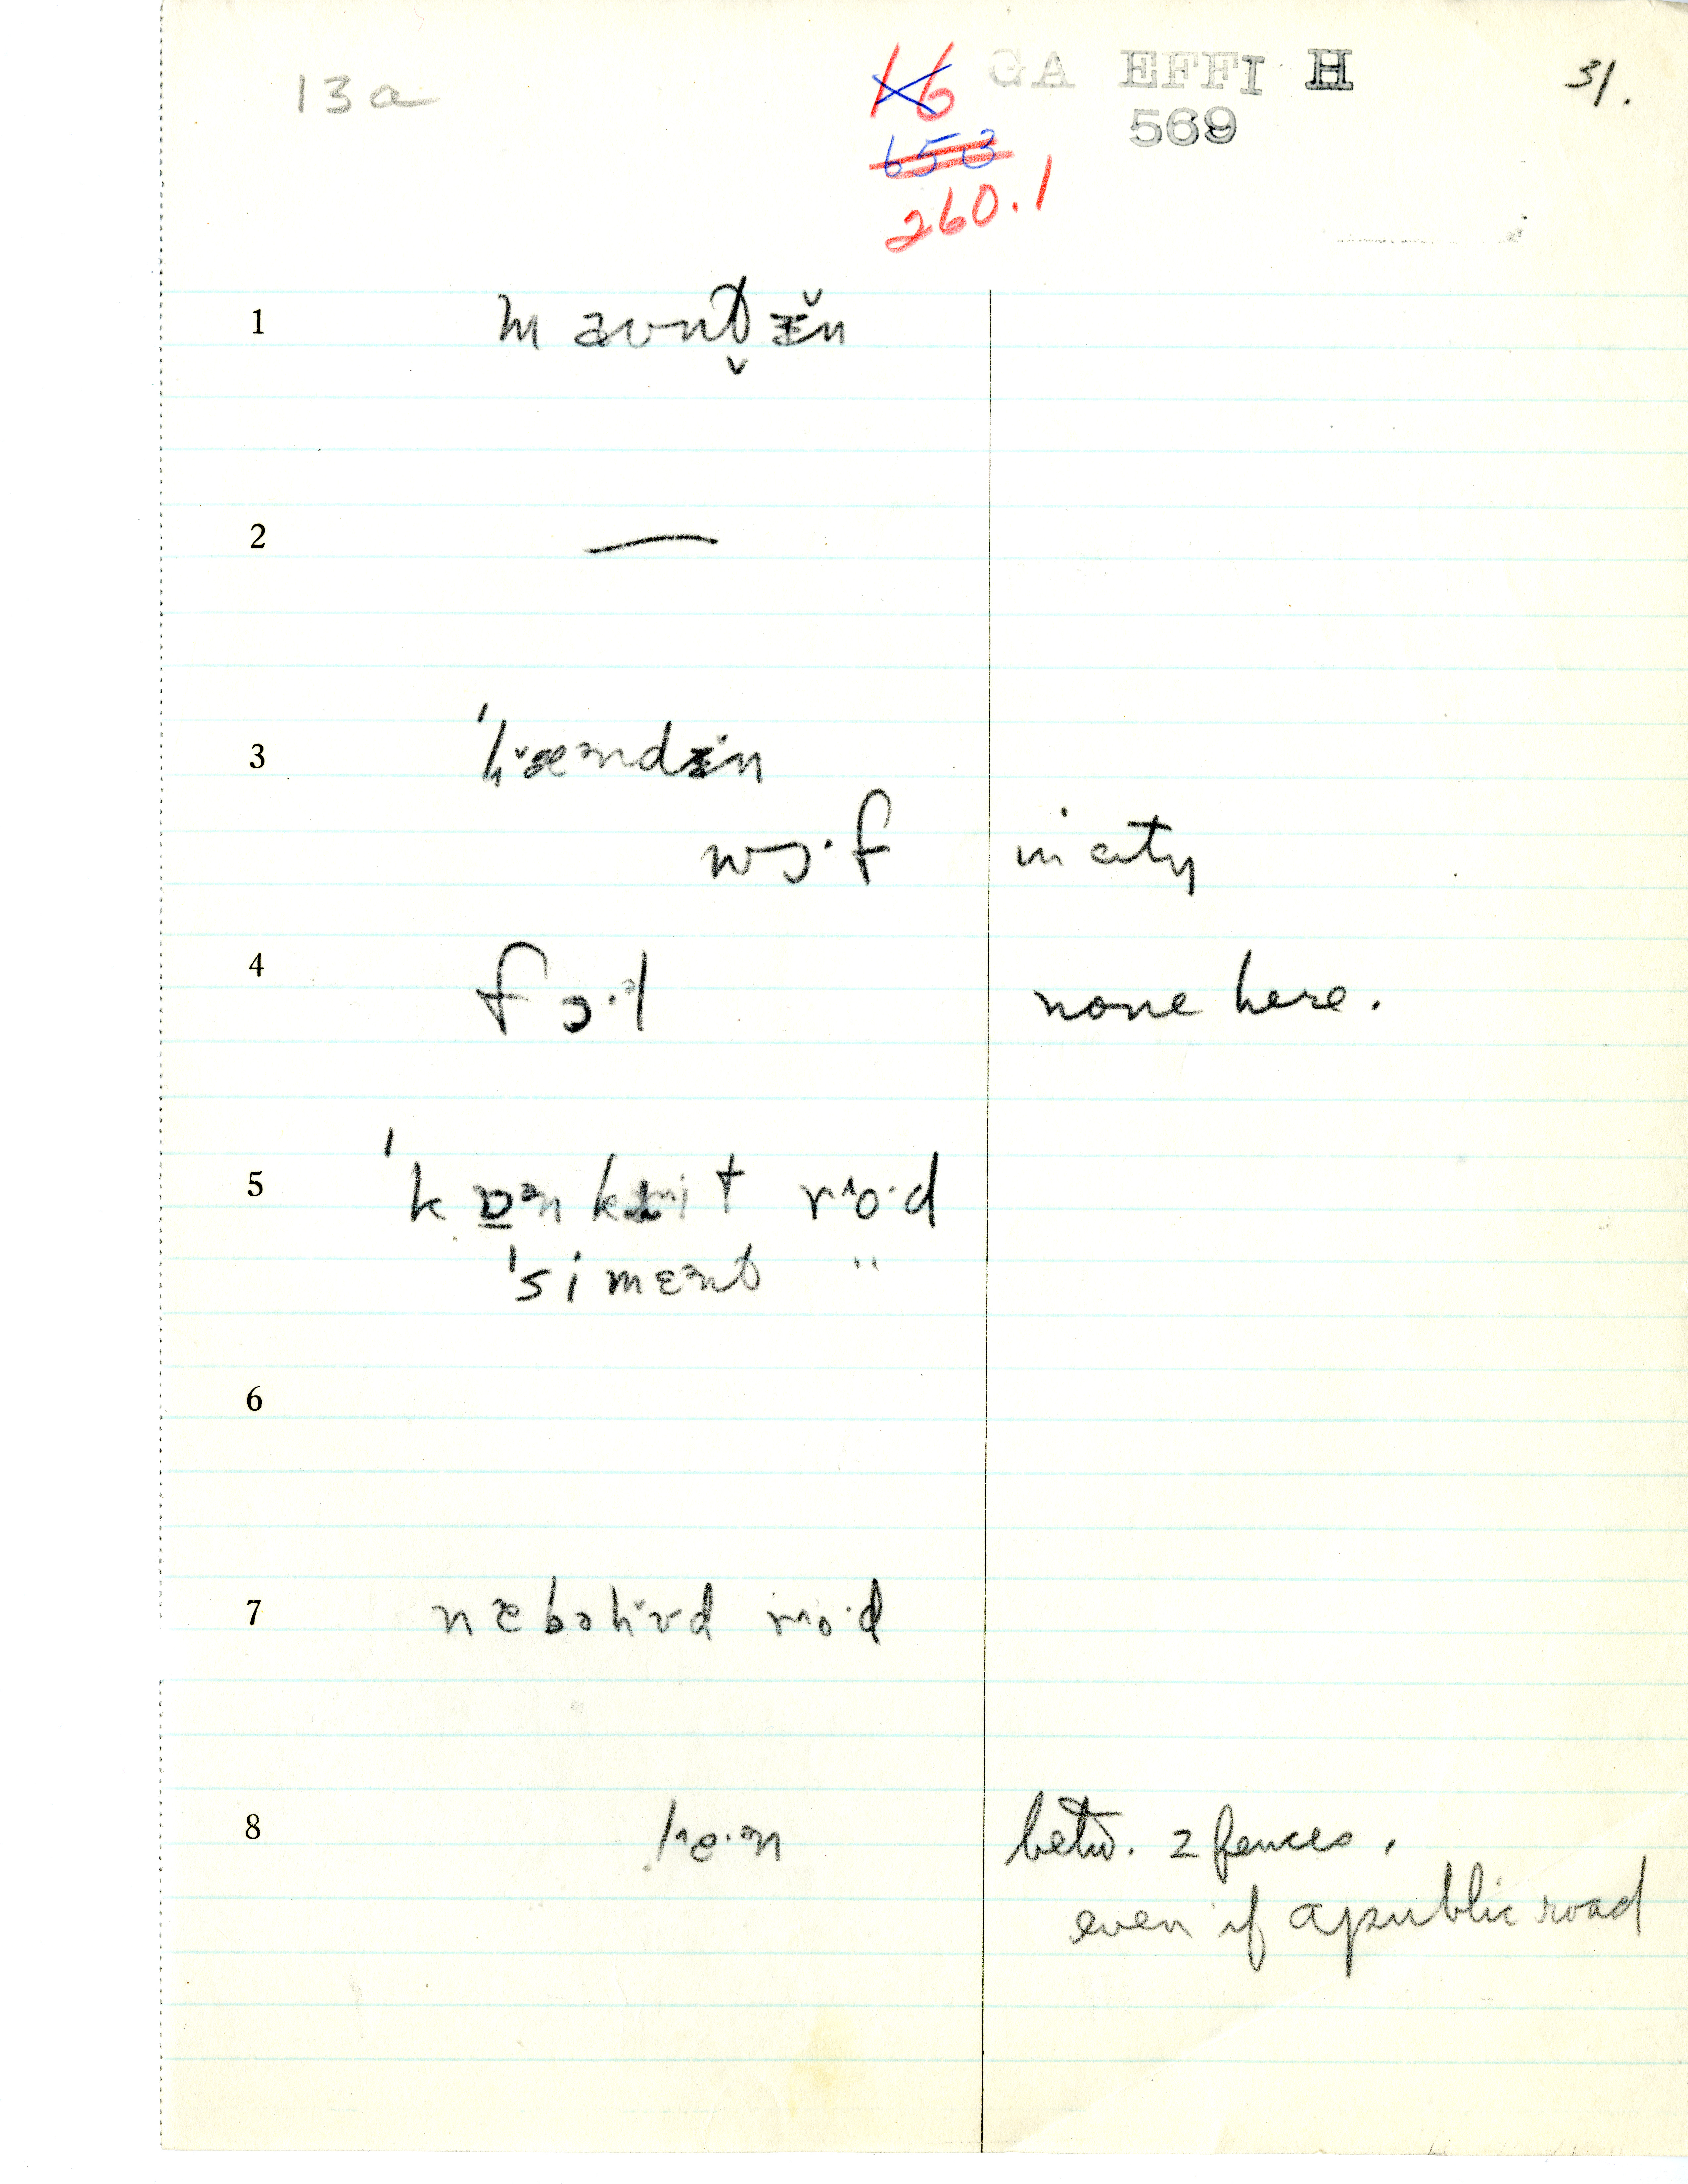 13a 16 GA EFFI H 31.
653 569
260.1
1 maʊnt̬ɪ̆n
2 —
3 'læᵊndɪ̆n
wɔ·f in city
4 fɔ·ᵊl none here.
5 'kɒᵊnkrit ro·d
'simɛᵊnt "
6
7 nɛbəhʊd ro·d
8 le·ᵊn betw. 2 fences,
even if a public road